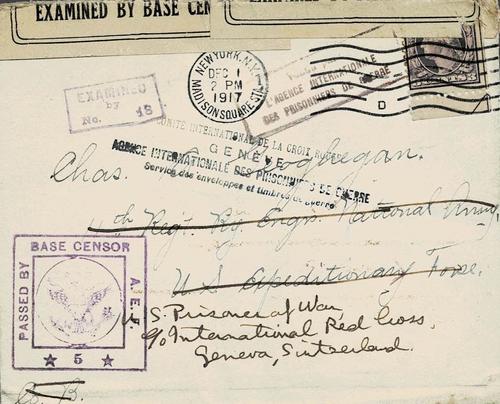 EXAMINED BY BASE CEN
EXAMINED BY BASE
NEW YORK, N.Y.
DEC 1
2 PM
1917
MADISON SQUARE STA.
D
L'AGENCE INTERNATIONALE
DES PRISONNIERS DE GUERRE
EXAMINED
by
No. 48
COMITÉ INTERNATIONAL DE LA CROIX ROUGE
GENÈVE
AGENCE INTERNATIONALE DES PRISONNIERS DE GUERRE
Service des enveloppes et timbres de guerre
Chas. Geoghegan.
11th Reg't. Ry. Engrs. National Army,
U.S. Expeditionary Force.
U.S. Prisoner of War,
c/o International Red Cross,
Geneva, Switzerland.
BASE CENSOR
PASSED BY
A.E.F.
★ 5 ★